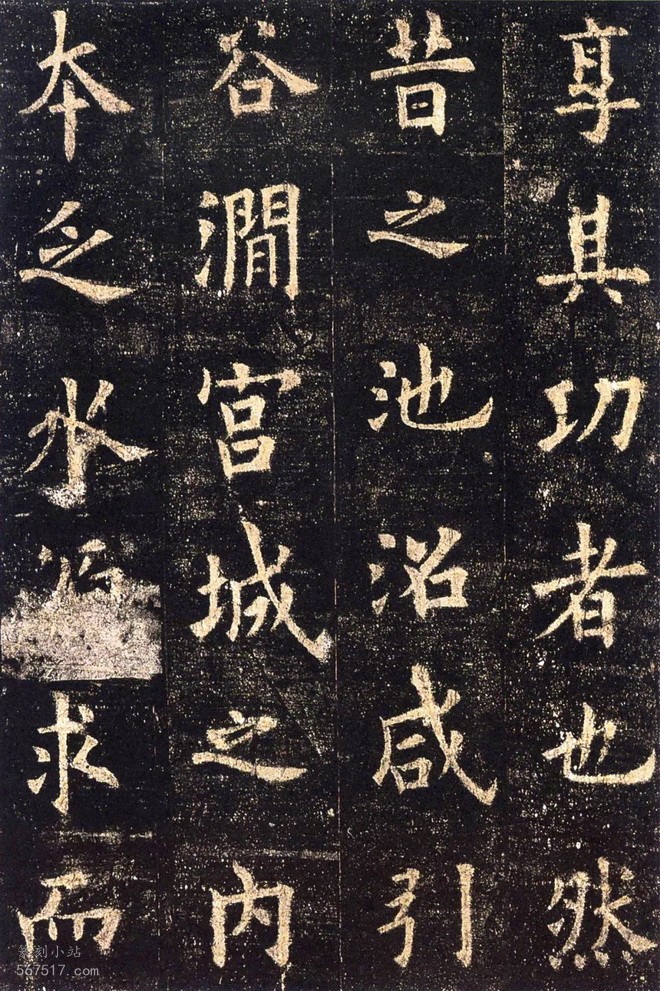 享其功者也然
昔之池沼咸引
谷澗宮城之內
本乏水求而
篆刻小站
567517.com